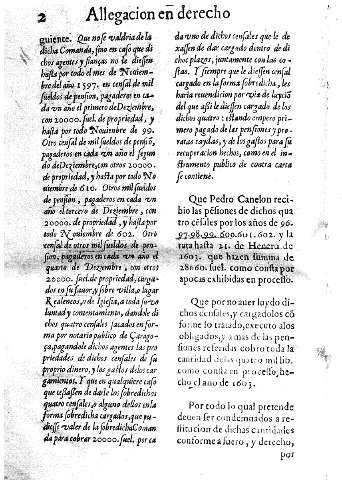 2 Allegacion en derecho
guiente. Que no se valdria de la
dicha Comanda, sino en caso que di
chos agentes y fianças no le diessen
hasta por todo el mes de Nouiem-
bre del año 1597. en censal de mil
sueldos de pension, pagaderos en ca-
da vn año el primero de Deziembre,
con 20000. suel. de propriedad, y
hasta por todo Nouiembre de 99.
Otro censal de mil sueldos de pensiõ,
pagaderos en cada vn año el segun
do de Deziembre, con otros 20000.
de propriedad, y hasta por todo No
uiembre de 610. Otros mil sueldos
de pension, pagaderos en cada vn
año el tercero de Deziembre, con
otros 20000. de propriedad, y hasta
por todo Nouiembre de 602. Otro
censal de otros mil sueldos de pen-
sion, pagaderos en cada vn año el
quarto de Deziembre, con otros
20000. suel. de propriedad, cargados
en su fauor, y sobre villa, o lugar
Realencos, o de Iglesia, a toda su vo
luntad y contentamiento, dandole di
chos quatro censales sacados en for-
ma por notario publico de Carago-
ça pagandole dichos agentes las pro
priedades de dichos censales de su
proprio dinero, y los gastos delos car
gamientos. Y que en qualquiere caso
que cessassen de darle los sobredichos
quatro censales, o alguno dellos en la
forma sobredicha cargados, que pu-
diesse valer de la sobredicha Coman
da para cobrar 20000. suel. por ca
da vno de dichos censales que le de
xassen de dar cargado dentro de di
chos plazos, juntamente con las co-
stas. Y siempre que le diessen censal
cargado en la forma sobredicha, les
haria reuendicion por via de luyció
del que assi le diessen cargado de los
dichos quatro: estando empero pri-
mero pagado de las pensiones y pro-
ratas caydas, y de los gastos para su
recuperacion hechos, como en el in-
strumento publico de contra carta
se contiene.
Que Pedro Canelon reci-
bio las pẽsiones de dichos qua
tro cẽsales por los años de 96.
97. 98. 99. 600. 601. 602. y la
rata hasta 21. de Henero de
1603. que hazen summa de
28060. suel. como consta por
apocas exhibidas en processo.
Que por no auer luydo di-
chos censales, y cargadolos cõ
forme lo tratado, executo a los
obligados, y a mas de las pen-
siones referidas cobro toda la
cantidad de los quatro mil lib.
como consta en processo, he-
cho el año de 1603.
Por todo lo qual pretende
deuen ser condemnados a re-
stitucion de dichas cantidades
conforme a fuero, y derecho,
por